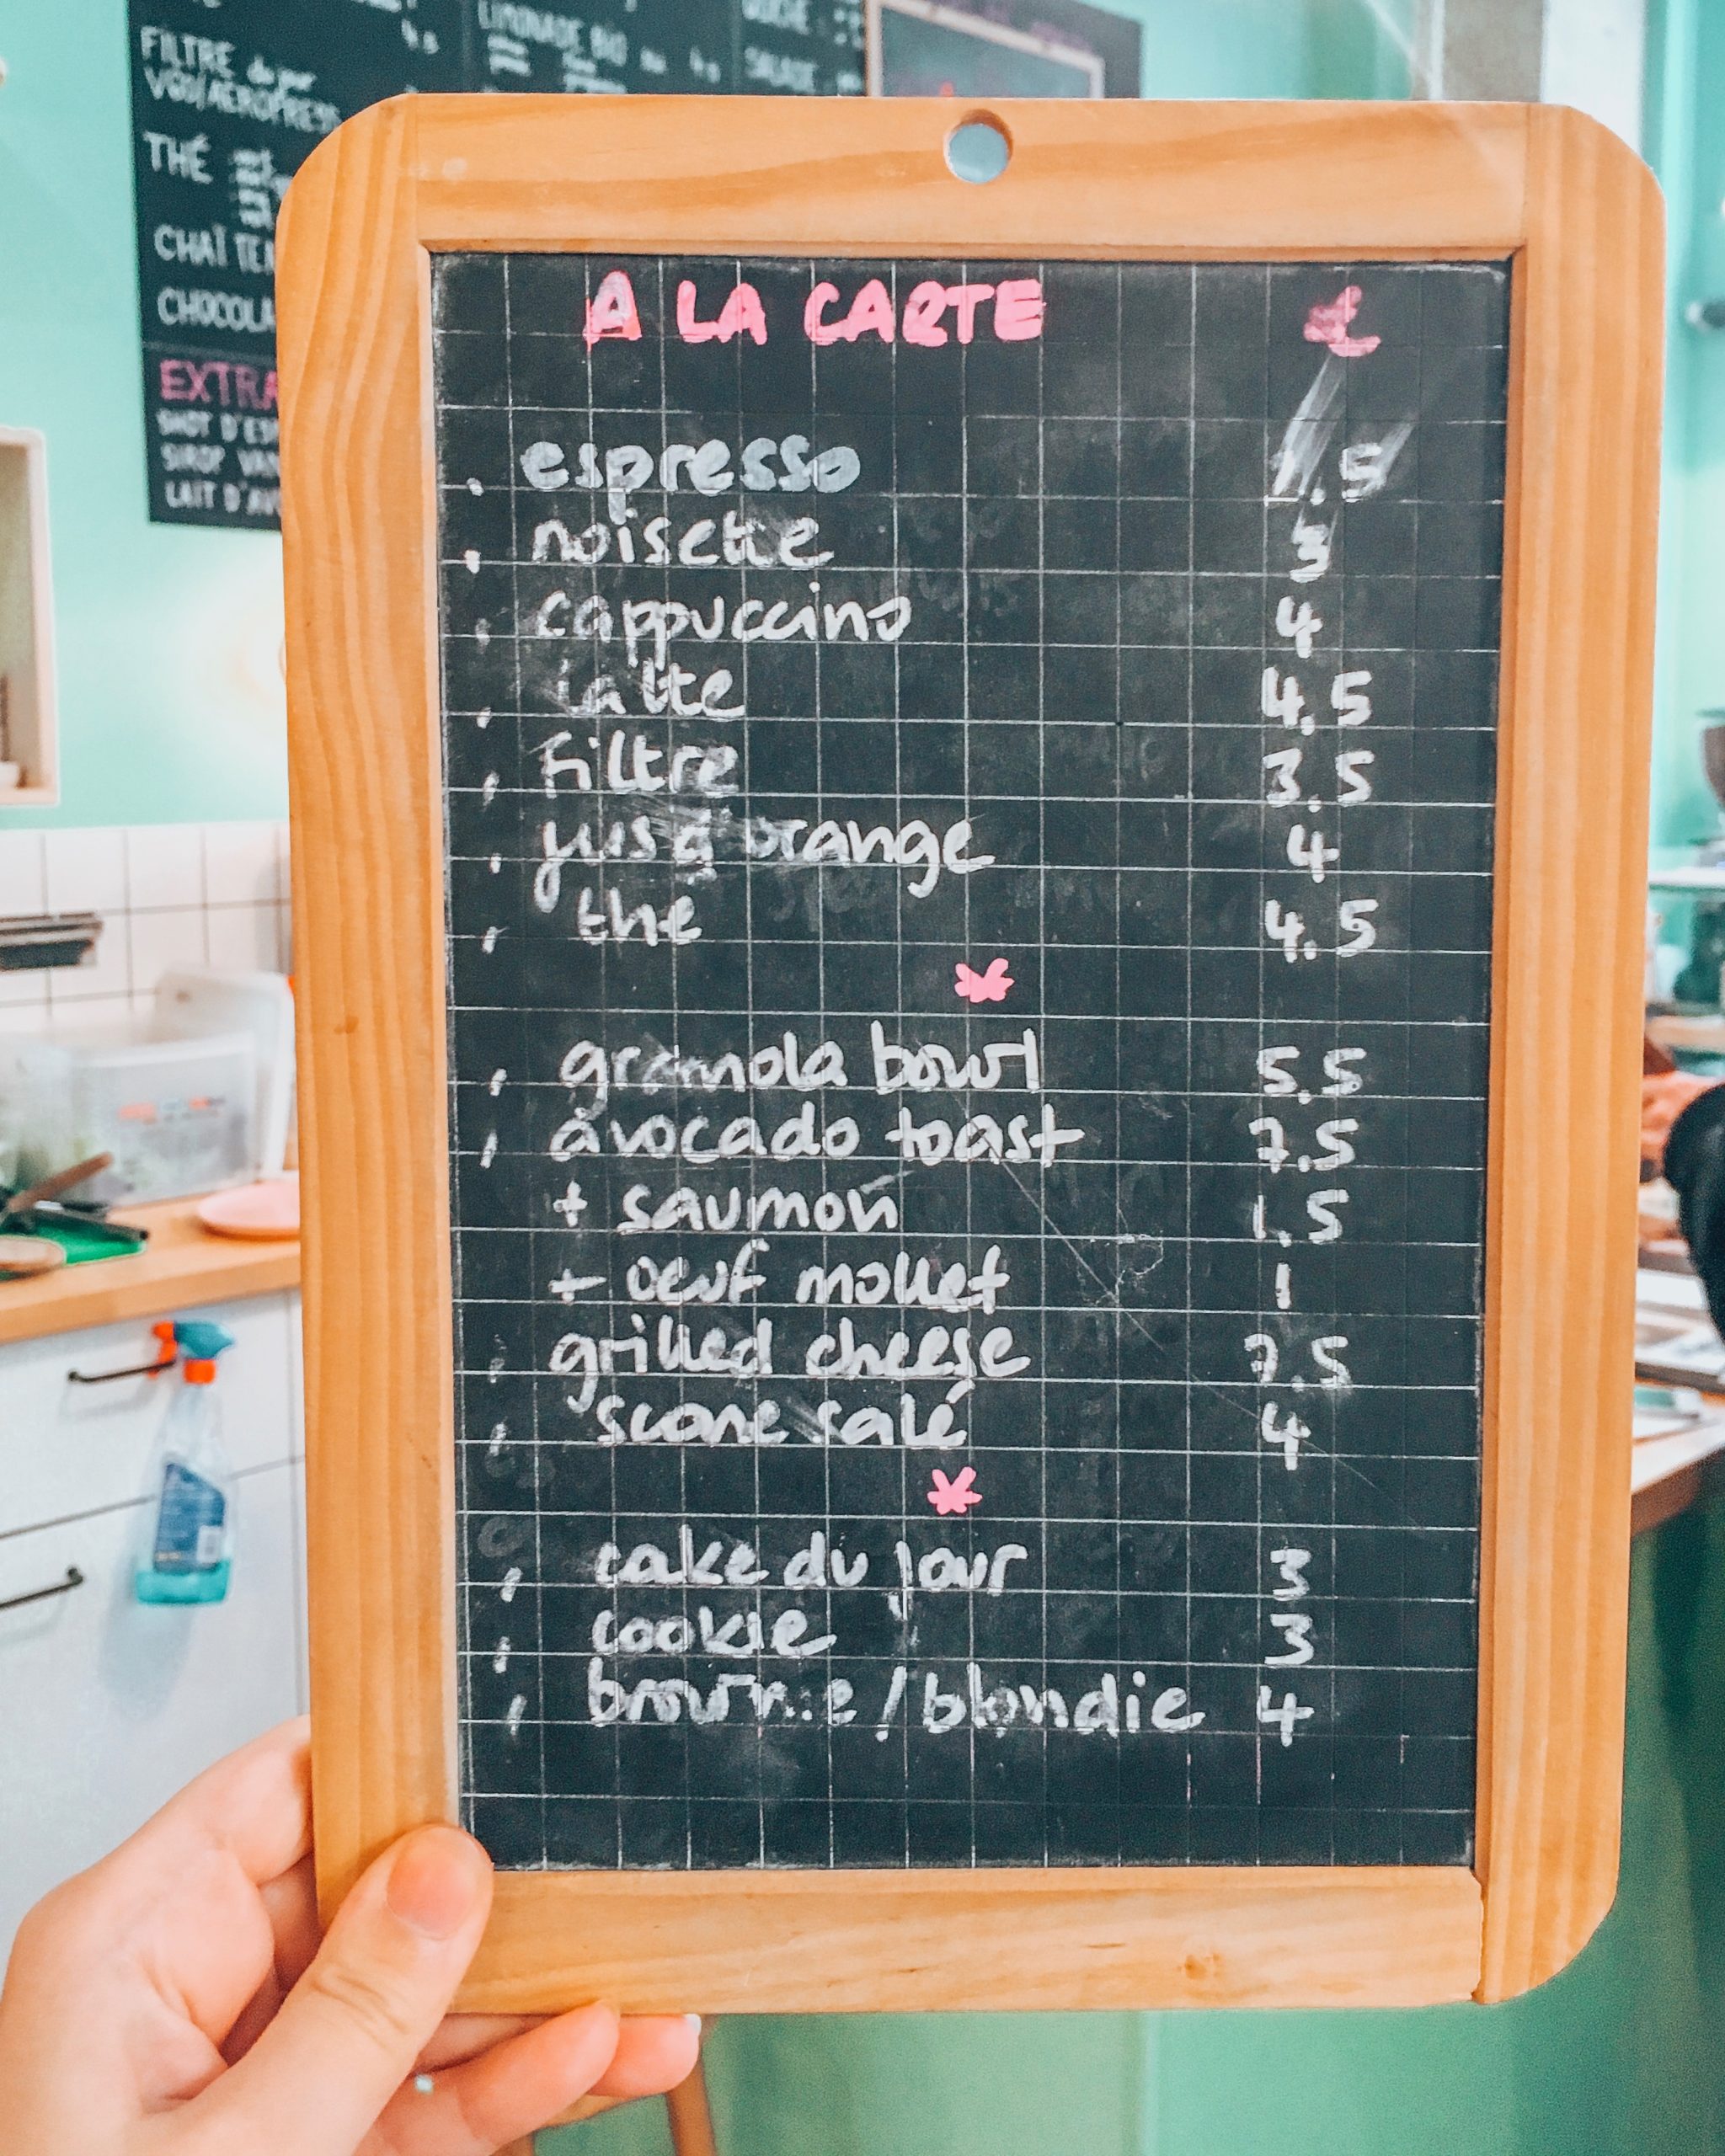 FILTRE du jour
V60/AEROPRESS
THÉ
CHAÏ TEA
CHOCOLA
EXTRA
SHOT D'ESP
SIROP VAN
LAIT D'AV
LIMONADE BIO
SALADE
A LA CARTE €
espresso 2.5
noisette 3
cappuccino 4
latte 4.5
Filtre 3.5
jus d'orange 4
the 4.5
granola bowl 5.5
avocado toast 7.5
+ saumon 1.5
+ oeuf mollet 1
grilled cheese 7.5
scone salé 4
cake du jour 3
cookie 3
brownie/blondie 4